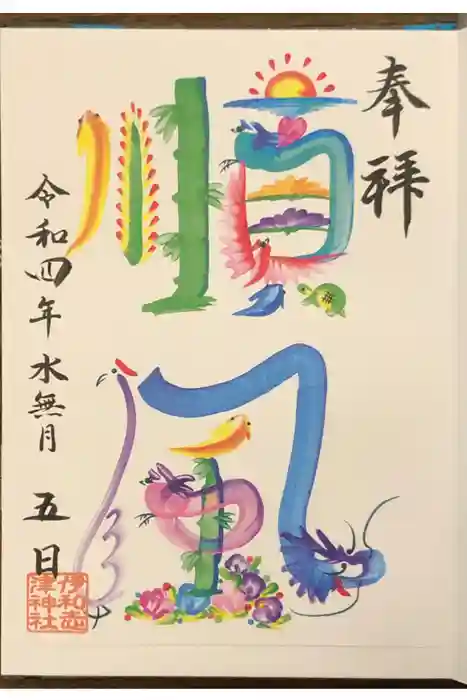 奉拝
順風
令和四年水無月五日
伊和志
津神社